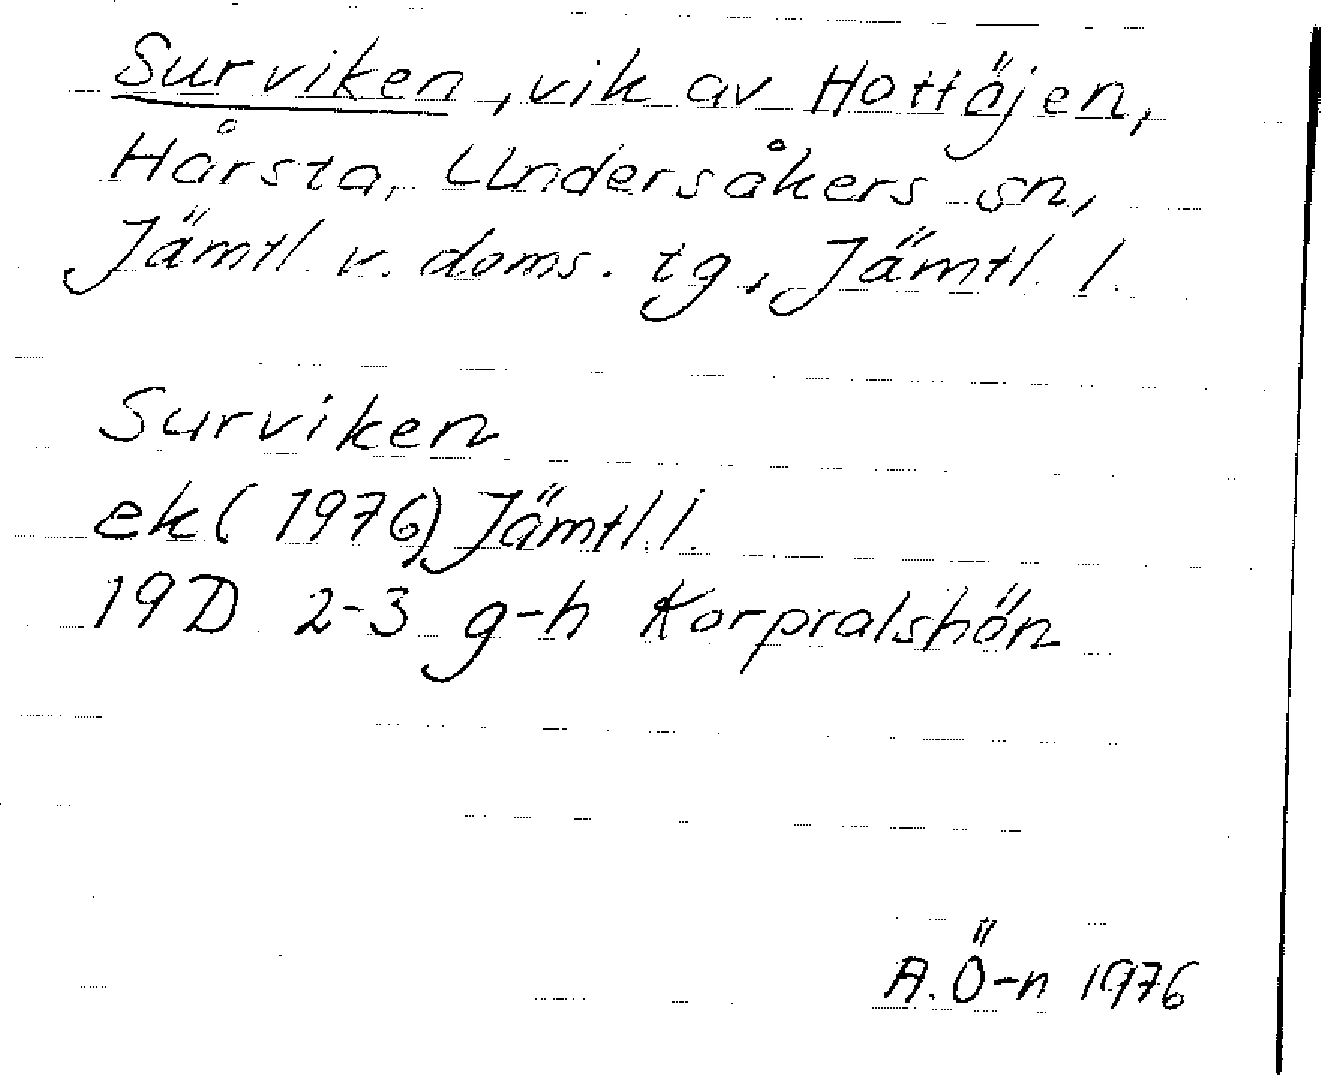 Surviken, vik av Hottöjen,
Hårsta, Undersåkers sn,
Jämtl. v. doms. tg, Jämtl. l.
Surviken
ek (1976) Jämtl. l.
19D 2-3 g-h Korpralshön
A. Ö-n 1976